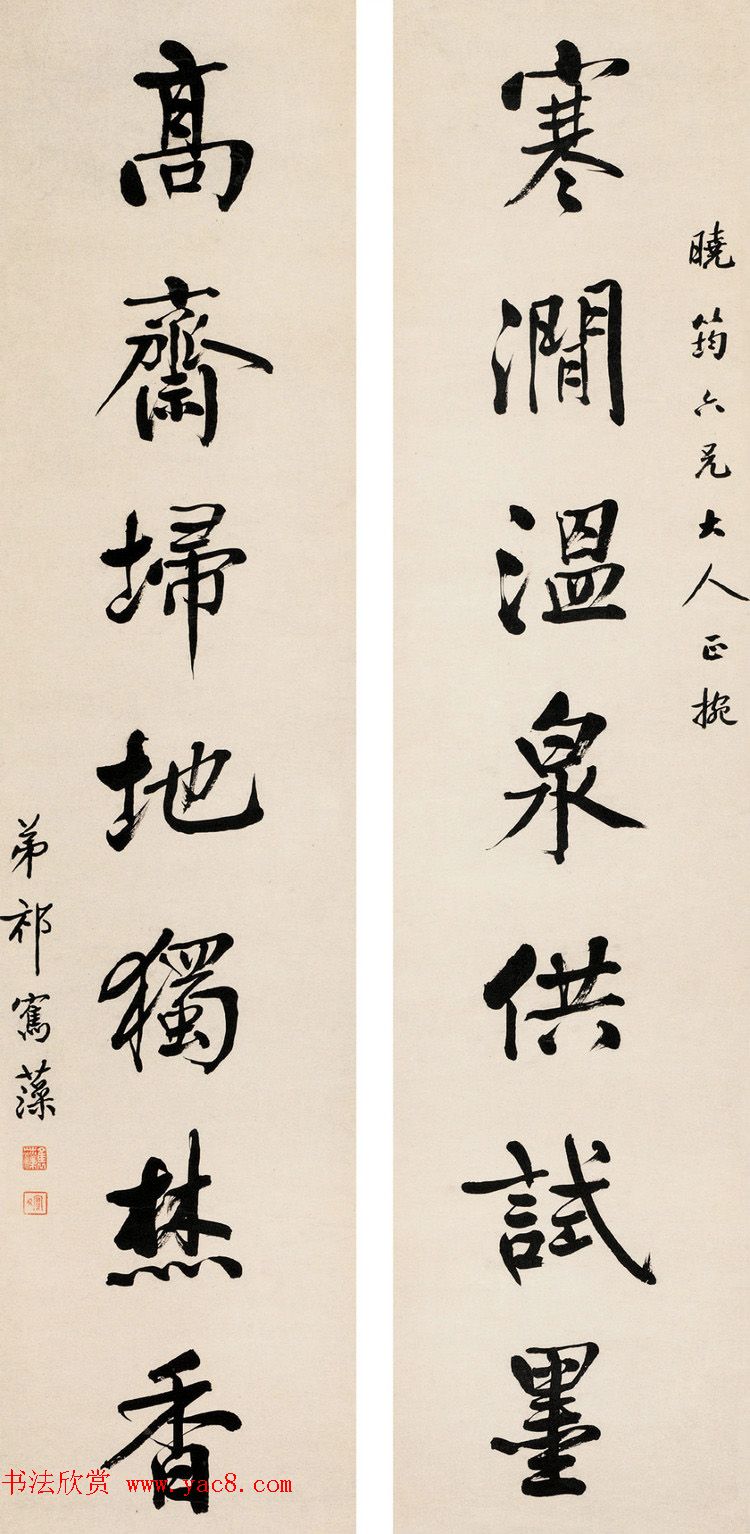 曉筠六兄大人正捥
寒澗溫泉供試墨
高齋埽地獨焚香
弟祁寯藻
书法欣赏 www.yac8.com